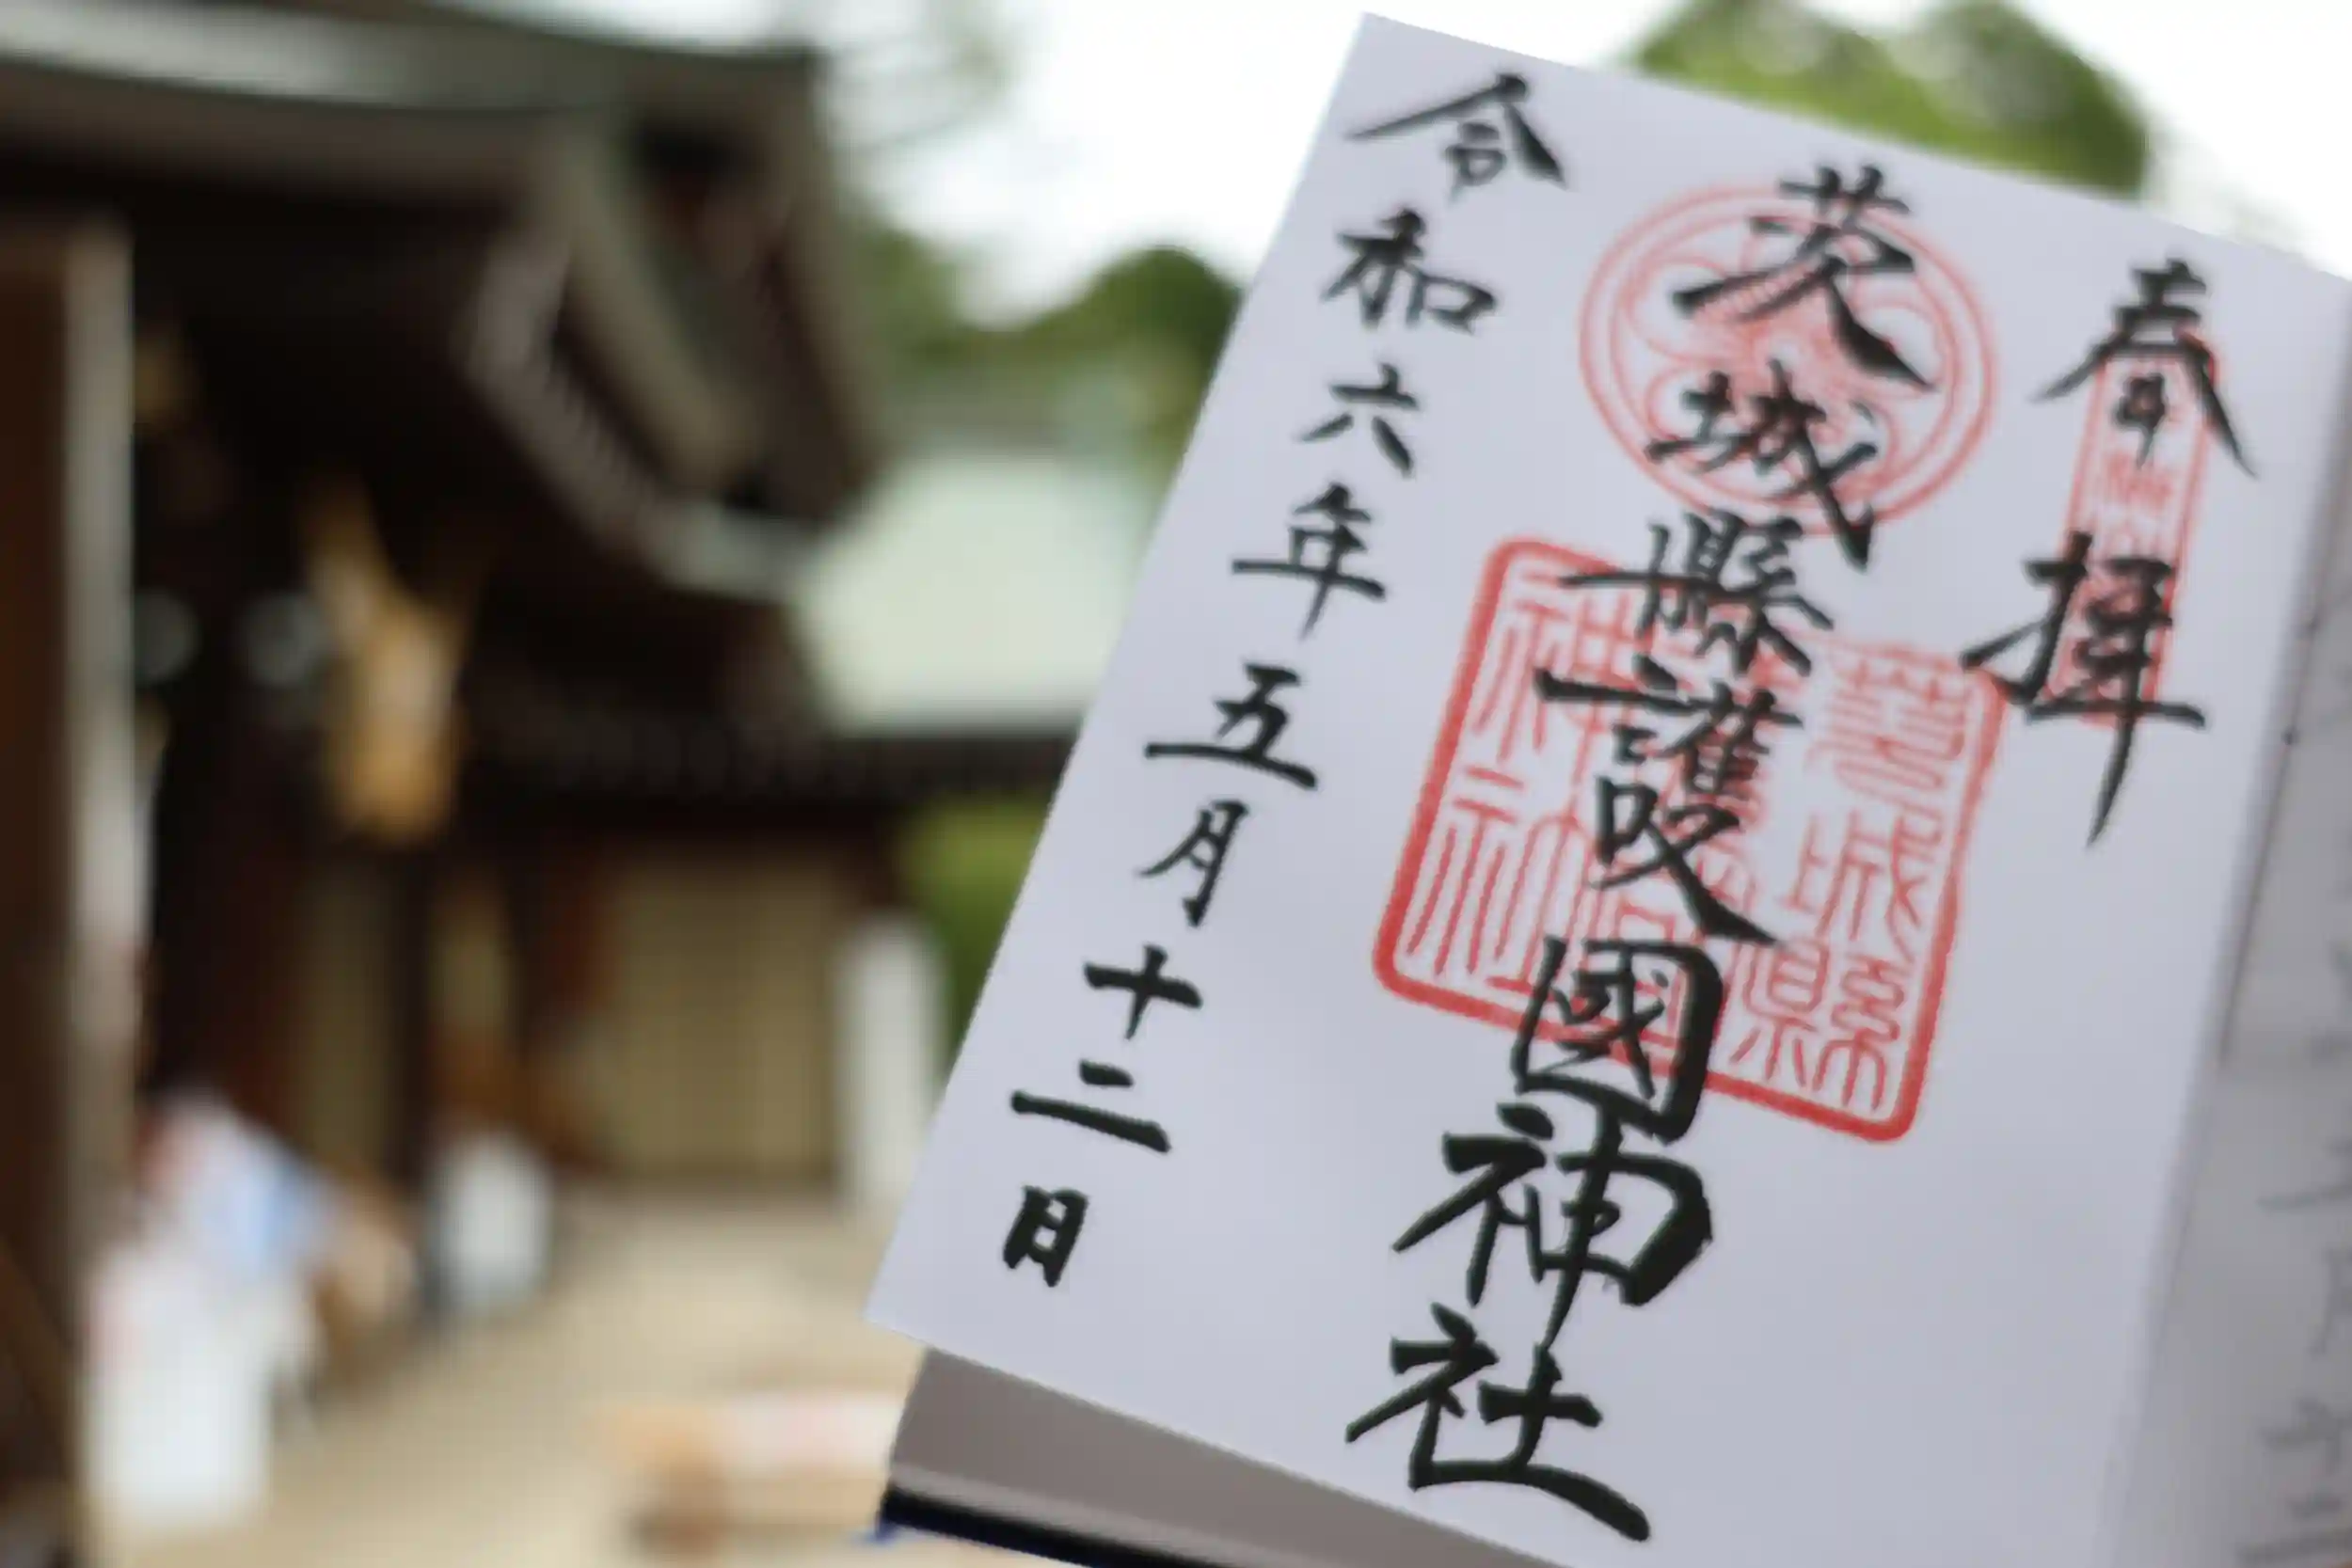 奉拝
茨城縣護國神社
令和六年五月十二日
茨城縣
護國
神社